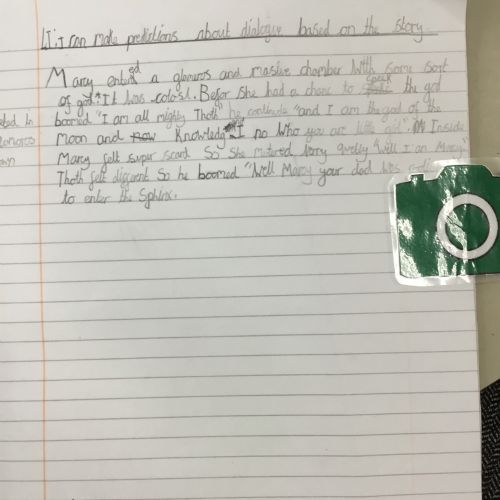 LI: I can make predictions about dialogue based on the story.
Mary entered a glamorus and masive chamber with some sort
of god. "It was colosl. Befor she had a chanc to speak the god
boomed "I am all mighty Thoth" he continute "and I am the god of the
moon and now Knowledg I no Who you are little girl". Inside
Mary felt super scard So She mutered very quietly "Well I am Mary"
Thoth felt So he boomed "Well Mary your dad was
to enter the Sphinx.